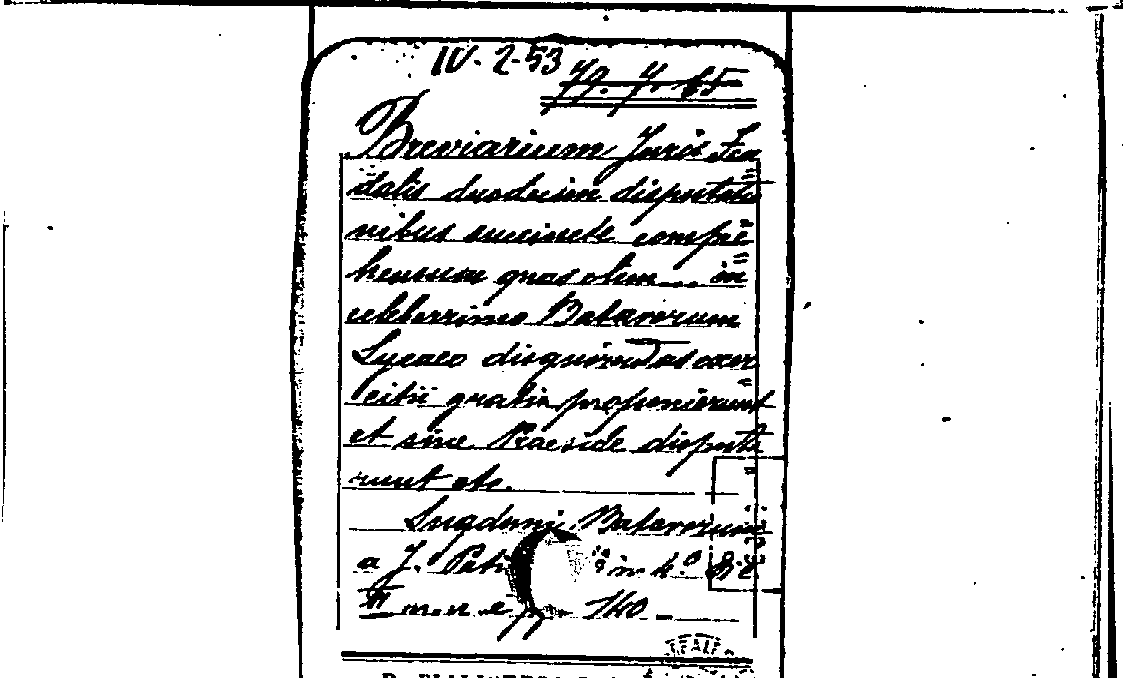 IV. 2-53
79. 7. 65
Breviarium Juris Feu
dalis duodecim disputatio
nibus succincte compre
hensum quas olim ... in
celeberrimo Batavorum
Lycaeo disquirendas exer
citii gratia proponierunt
et sine Praeside disputa
runt etc.
Lugduni Batavorum
a J. in 4°
II n. n. e pp 140